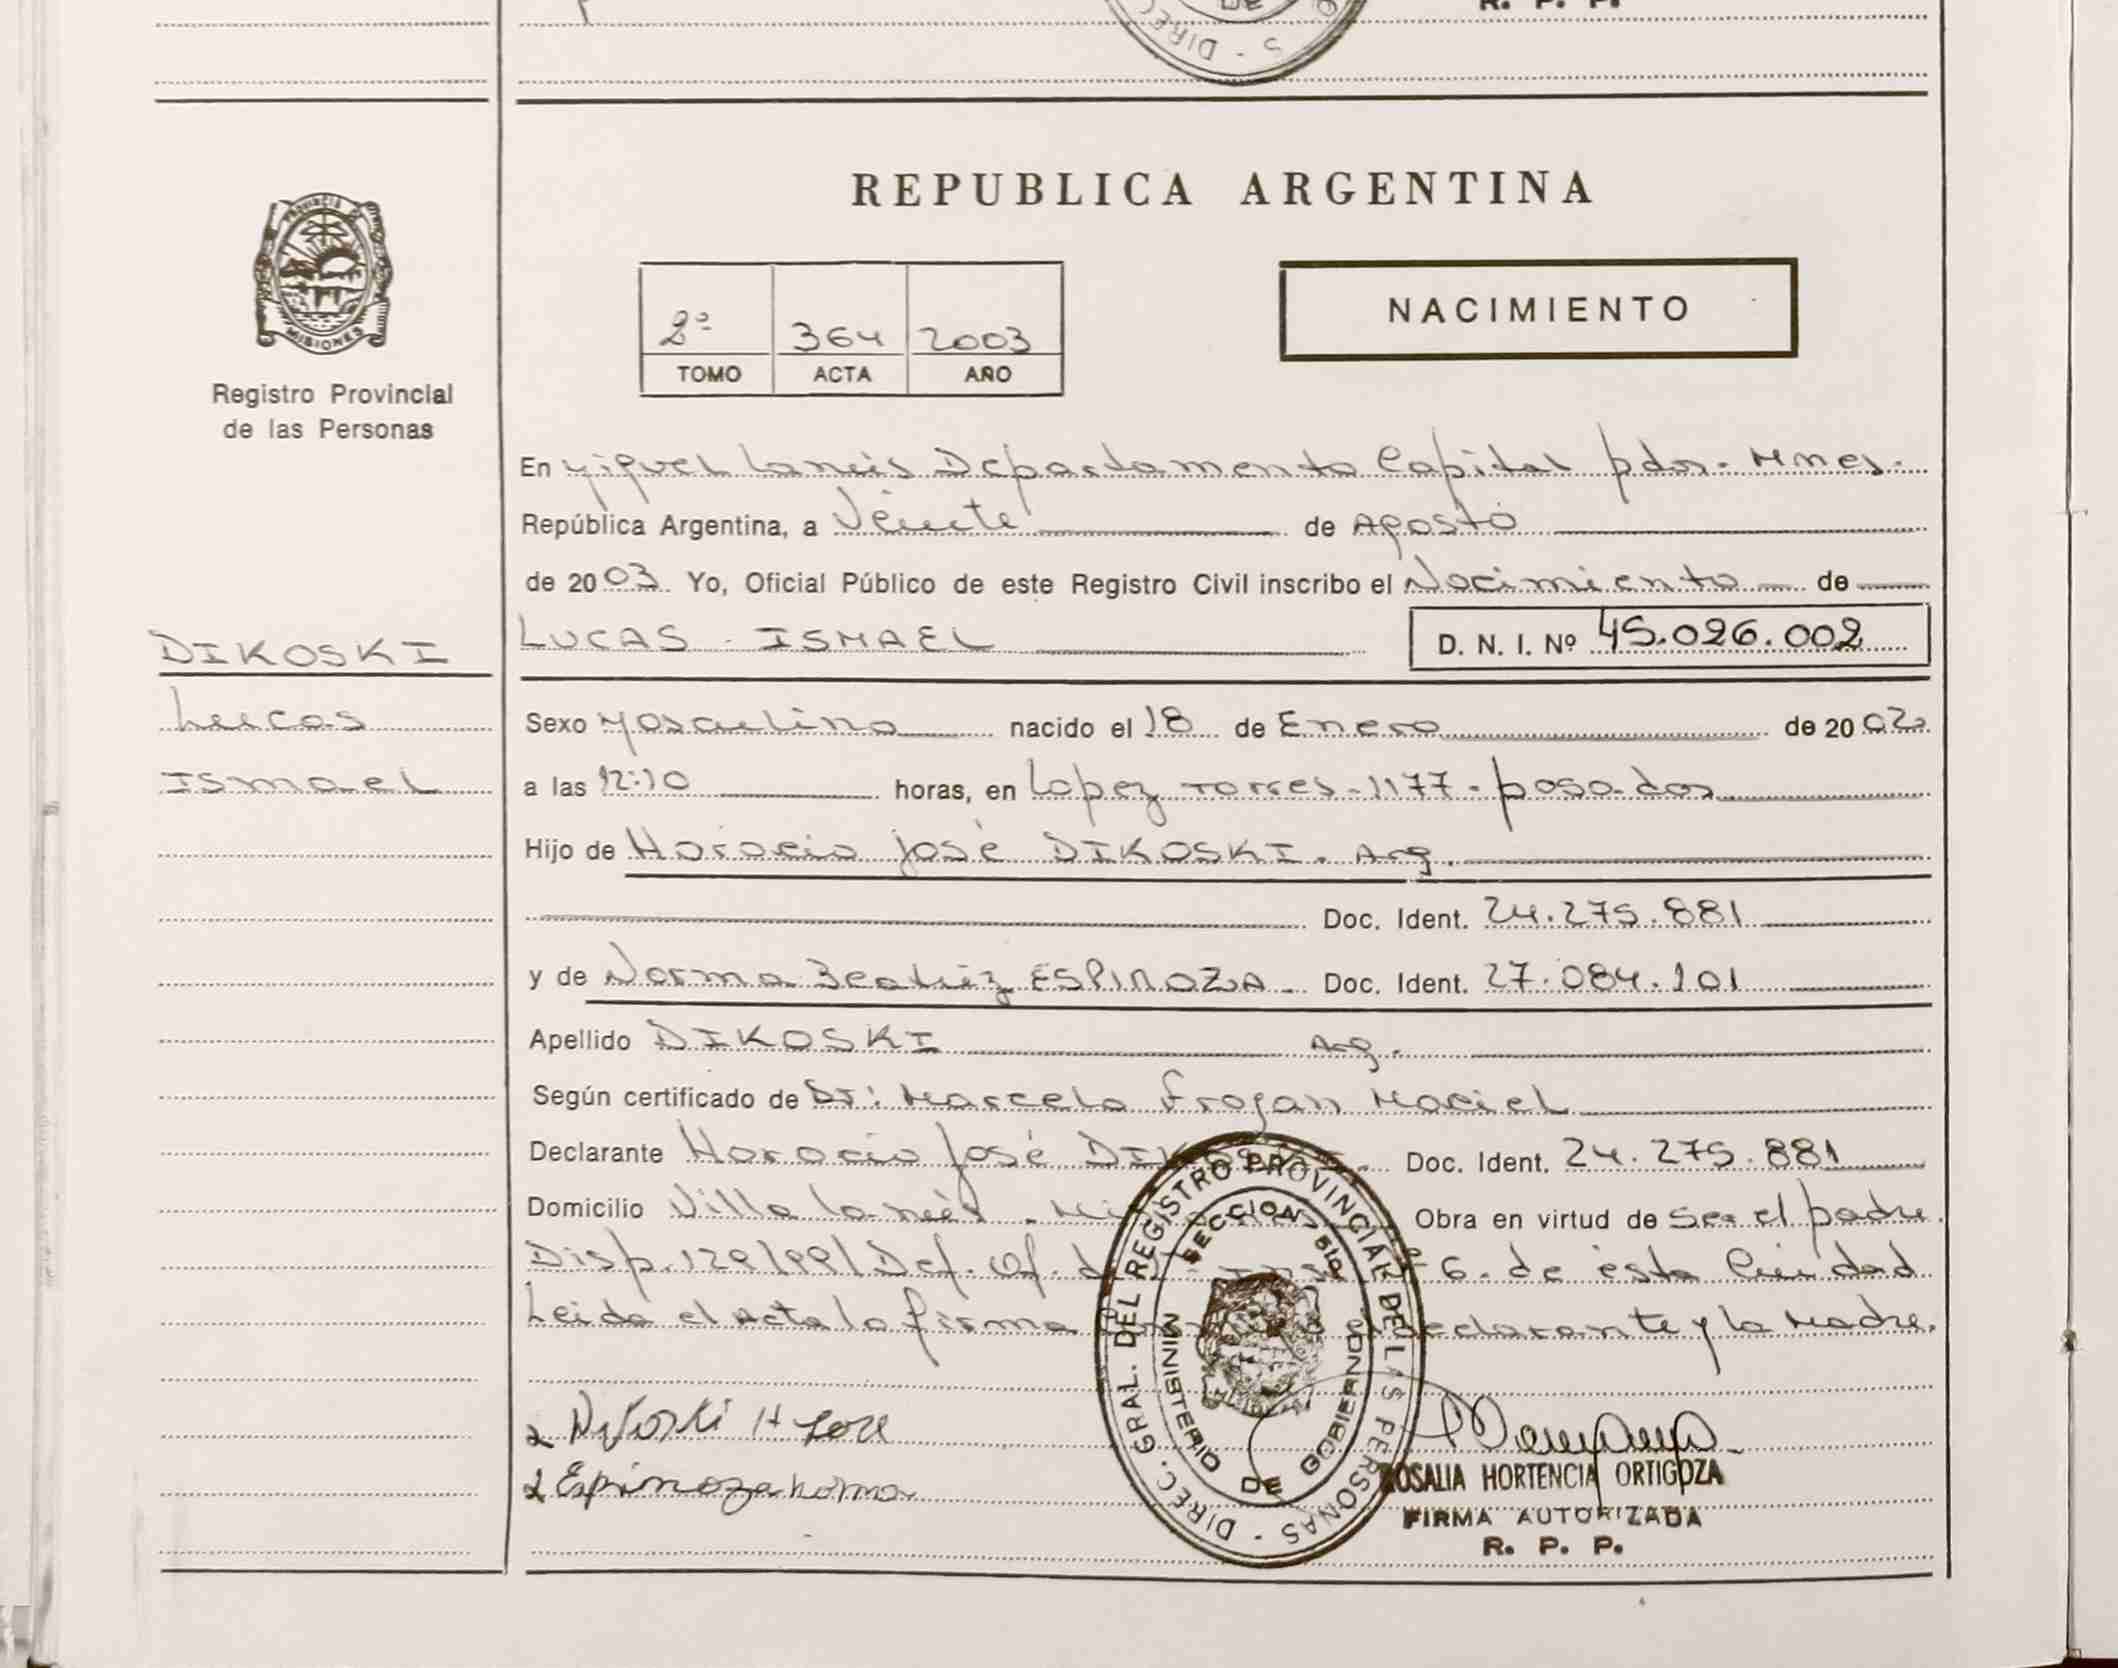 R. P. P.
DIREC
DE
REPUBLICA ARGENTINA
PROVINCIA DE
MISIONES
Registro Provincial
de las Personas
2º 364 2003
TOMO ACTA AÑO
NACIMIENTO
En Miguel Lanús Departamento Capital pdas. Mnes.
República Argentina, a Veinte de Agosto
de 2003. Yo, Oficial Público de este Registro Civil inscribo el Nacimiento de
DIKOSKI
Lucas
Ismael
LUCAS ISMAEL D. N. I. Nº 45.026.002
Sexo Masculino nacido el 18 de Enero de 2002
a las 12:10 horas, en Lopez Torres - 1177 - posadas
Hijo de Horacio José DIKOSKI. Arg.
Doc. Ident. 24.275.881
y de Norma Beatriz ESPINOZA. Doc. Ident. 27.084.101
Apellido DIKOSKI Arg.
Según certificado de Dr: Marcelo Froyan Maciel
Declarante Horacio José Doc. Ident. 24.275.881
Domicilio Villa Lanús. Obra en virtud de Ser el padre.
Disp. 129/99/Def. Of. 6. de ésta Ciudad
Leida el acta la firma declarante y la Madre.
Dikoski H José
Espinoza Norma
DIREC. GRAL. DEL REGISTRO PROVINCIAL DE LAS PERSONAS
MINISTERIO DE GOBIERNO
SECCION
ROSALIA HORTENCIA ORTIGOZA
FIRMA AUTORIZADA
R. P. P.